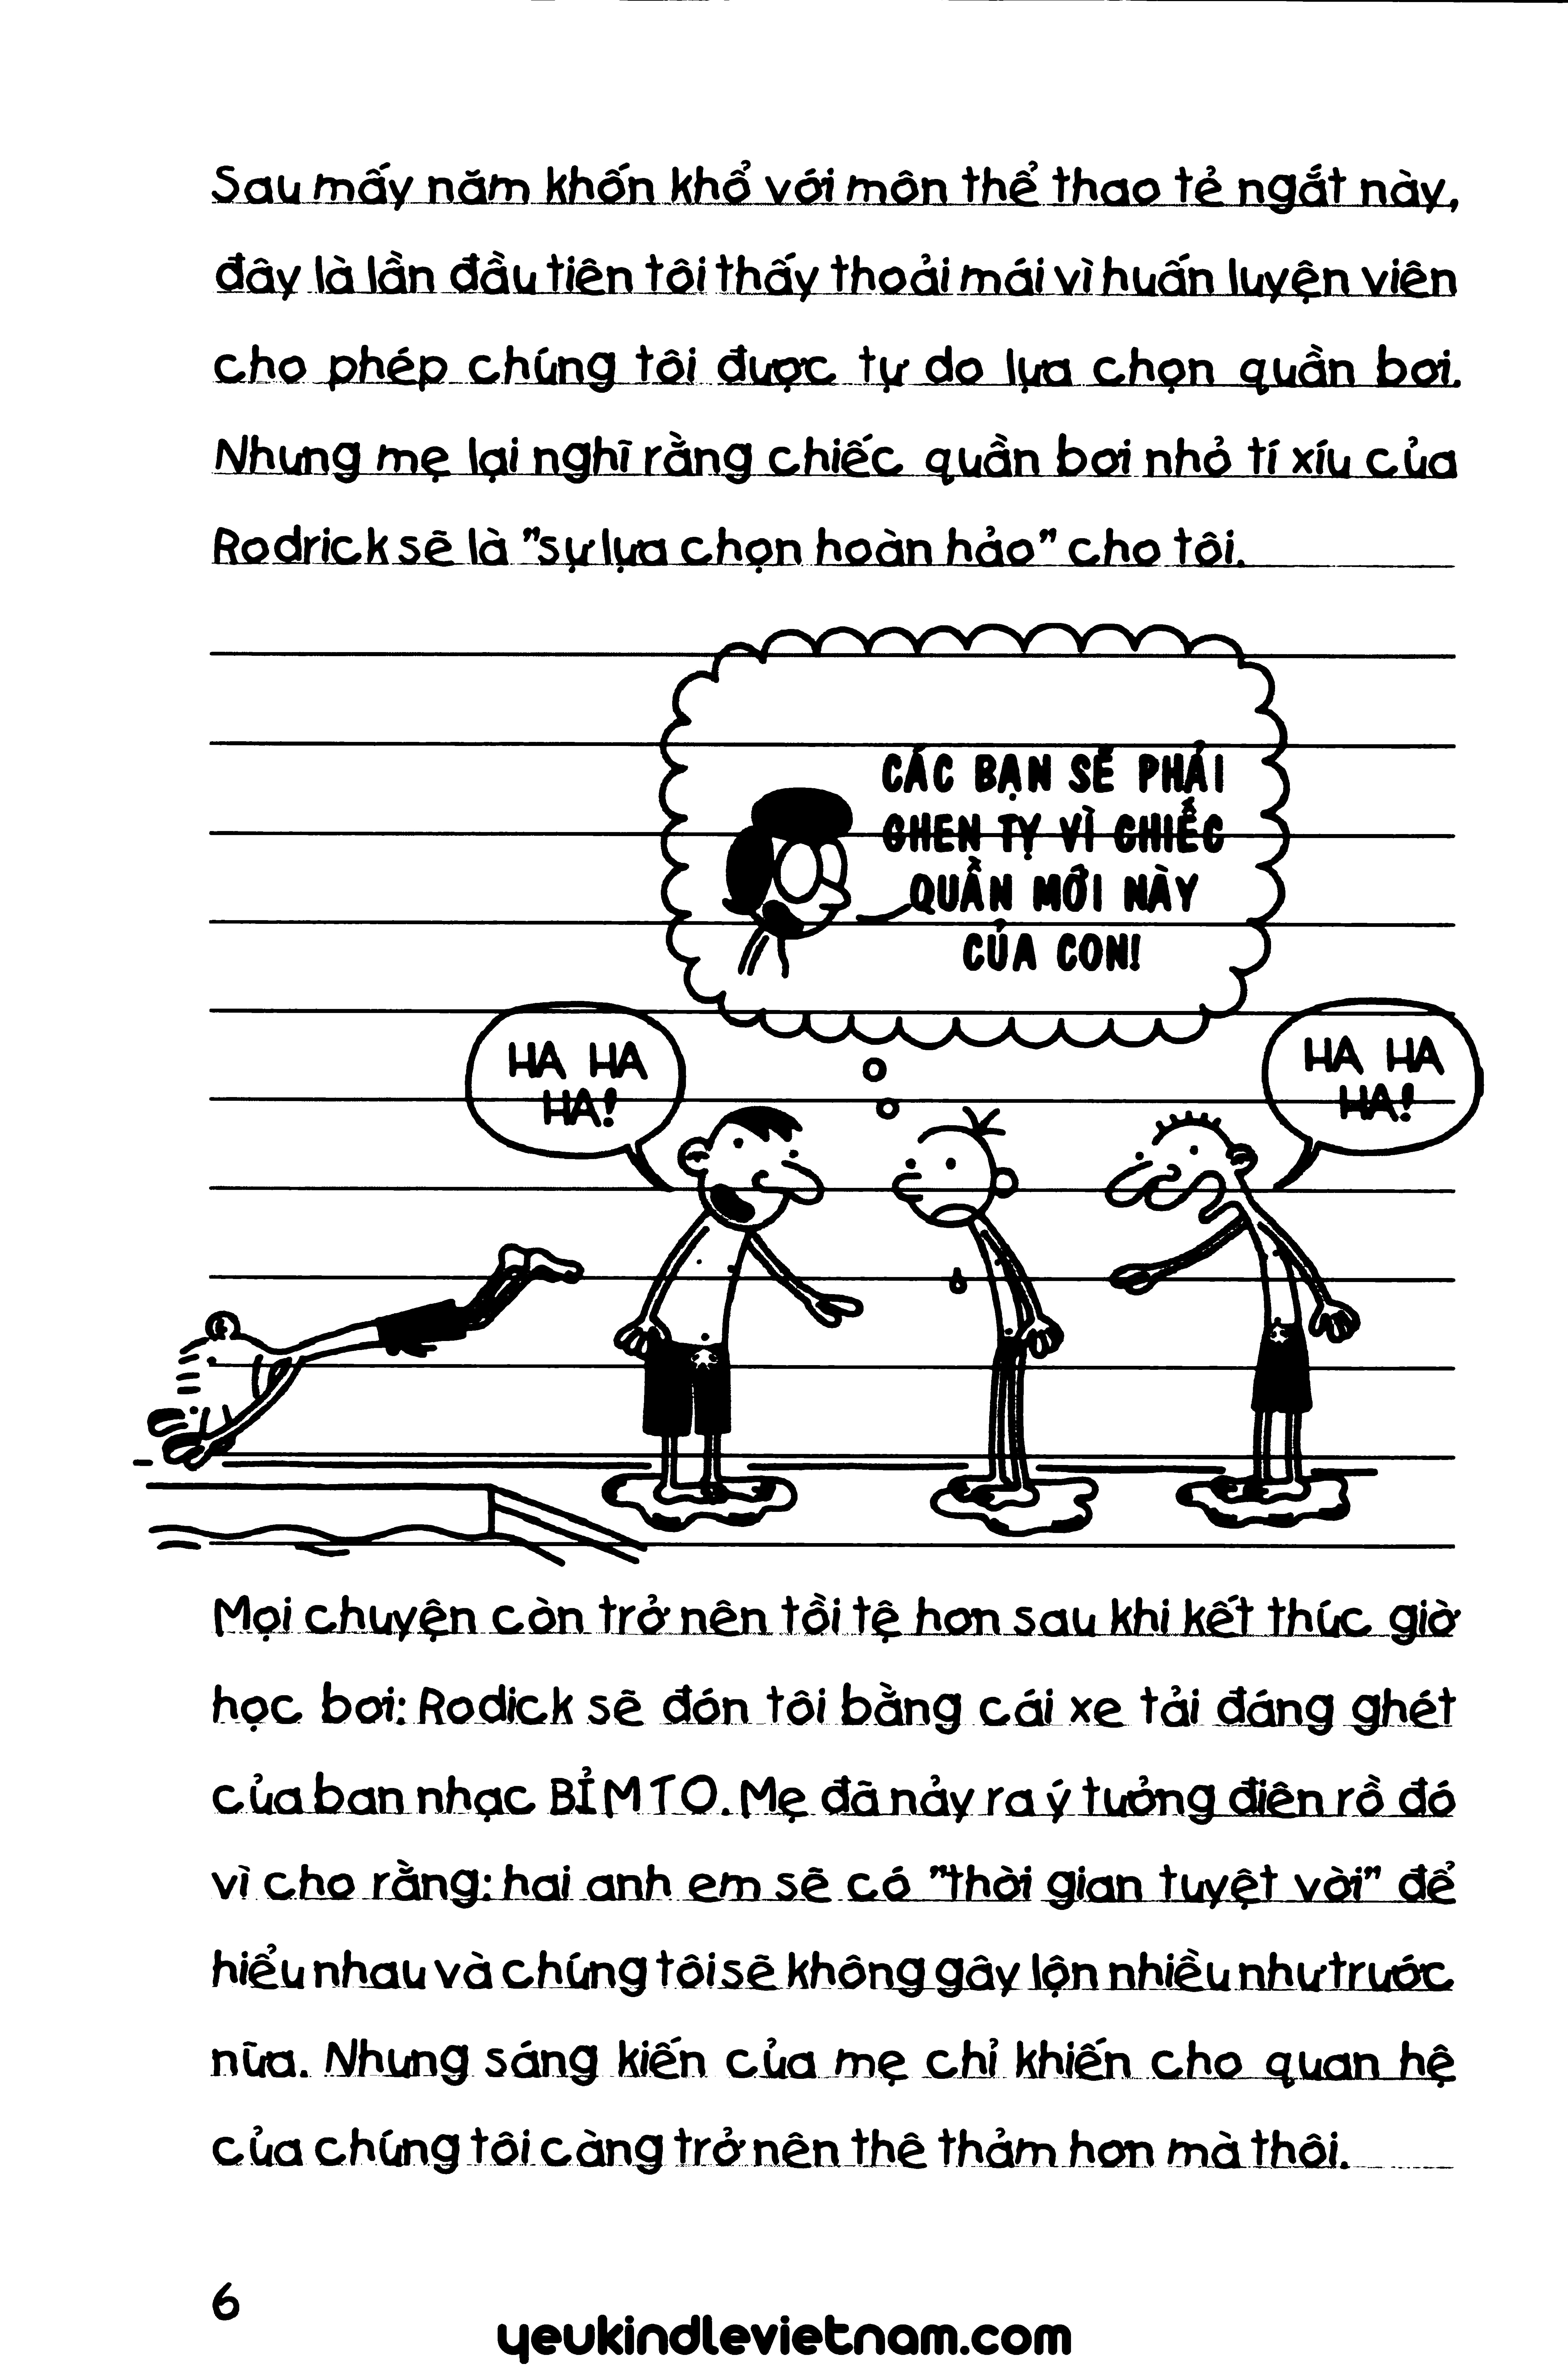 Sau mấy năm khốn khổ với môn thể thao tẻ ngắt này,
đây là lần đầu tiên tôi thấy thoải mái vì huấn luyện viên
cho phép chúng tôi được tự do lựa chọn quần bơi.
Nhưng mẹ lại nghĩ rằng chiếc quần bơi nhỏ tí xíu của
Rodrick sẽ là "sự lựa chọn hoàn hảo" cho tôi.
CÁC BẠN SẼ PHẢI
GHEN TỴ VÌ CHIẾC
QUẦN MỚI NÀY
CỦA CON!
HA HA
HA!
HA HA
HA!
Mọi chuyện còn trở nên tồi tệ hơn sau khi kết thúc giờ
học bơi: Rodick sẽ đón tôi bằng cái xe tải đáng ghét
của ban nhạc BỈM TO. Mẹ đã nảy ra ý tưởng điên rồ đó
vì cho rằng: hai anh em sẽ có "thời gian tuyệt vời" để
hiểu nhau và chúng tôi sẽ không gây lộn nhiều như trước
nữa. Nhưng sáng kiến của mẹ chỉ khiến cho quan hệ
của chúng tôi càng trở nên thê thảm hơn mà thôi.
6
yeukindlevietnam.com